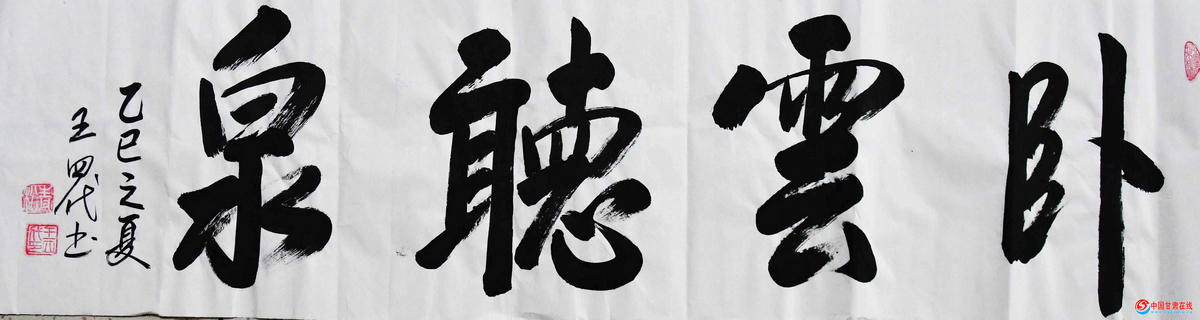 卧雲聽泉
乙巳之夏
王四代书
中国甘肃在线